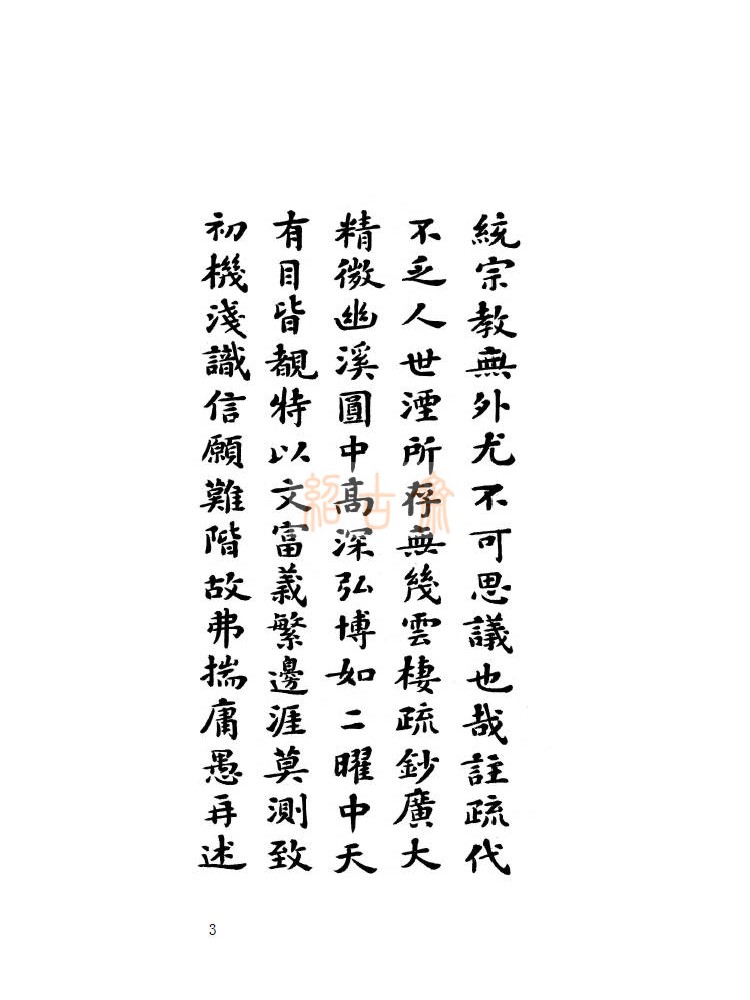 統宗教無外尤不可思議也哉註疏代
不乏人世湮所存無幾雲棲疏鈔廣大
精微幽溪圓中高深弘博如二曜中天
有目皆覩特以文富義繁邊涯莫測致
初機淺識信願難階故弗揣庸愚再述
紹古齋
3